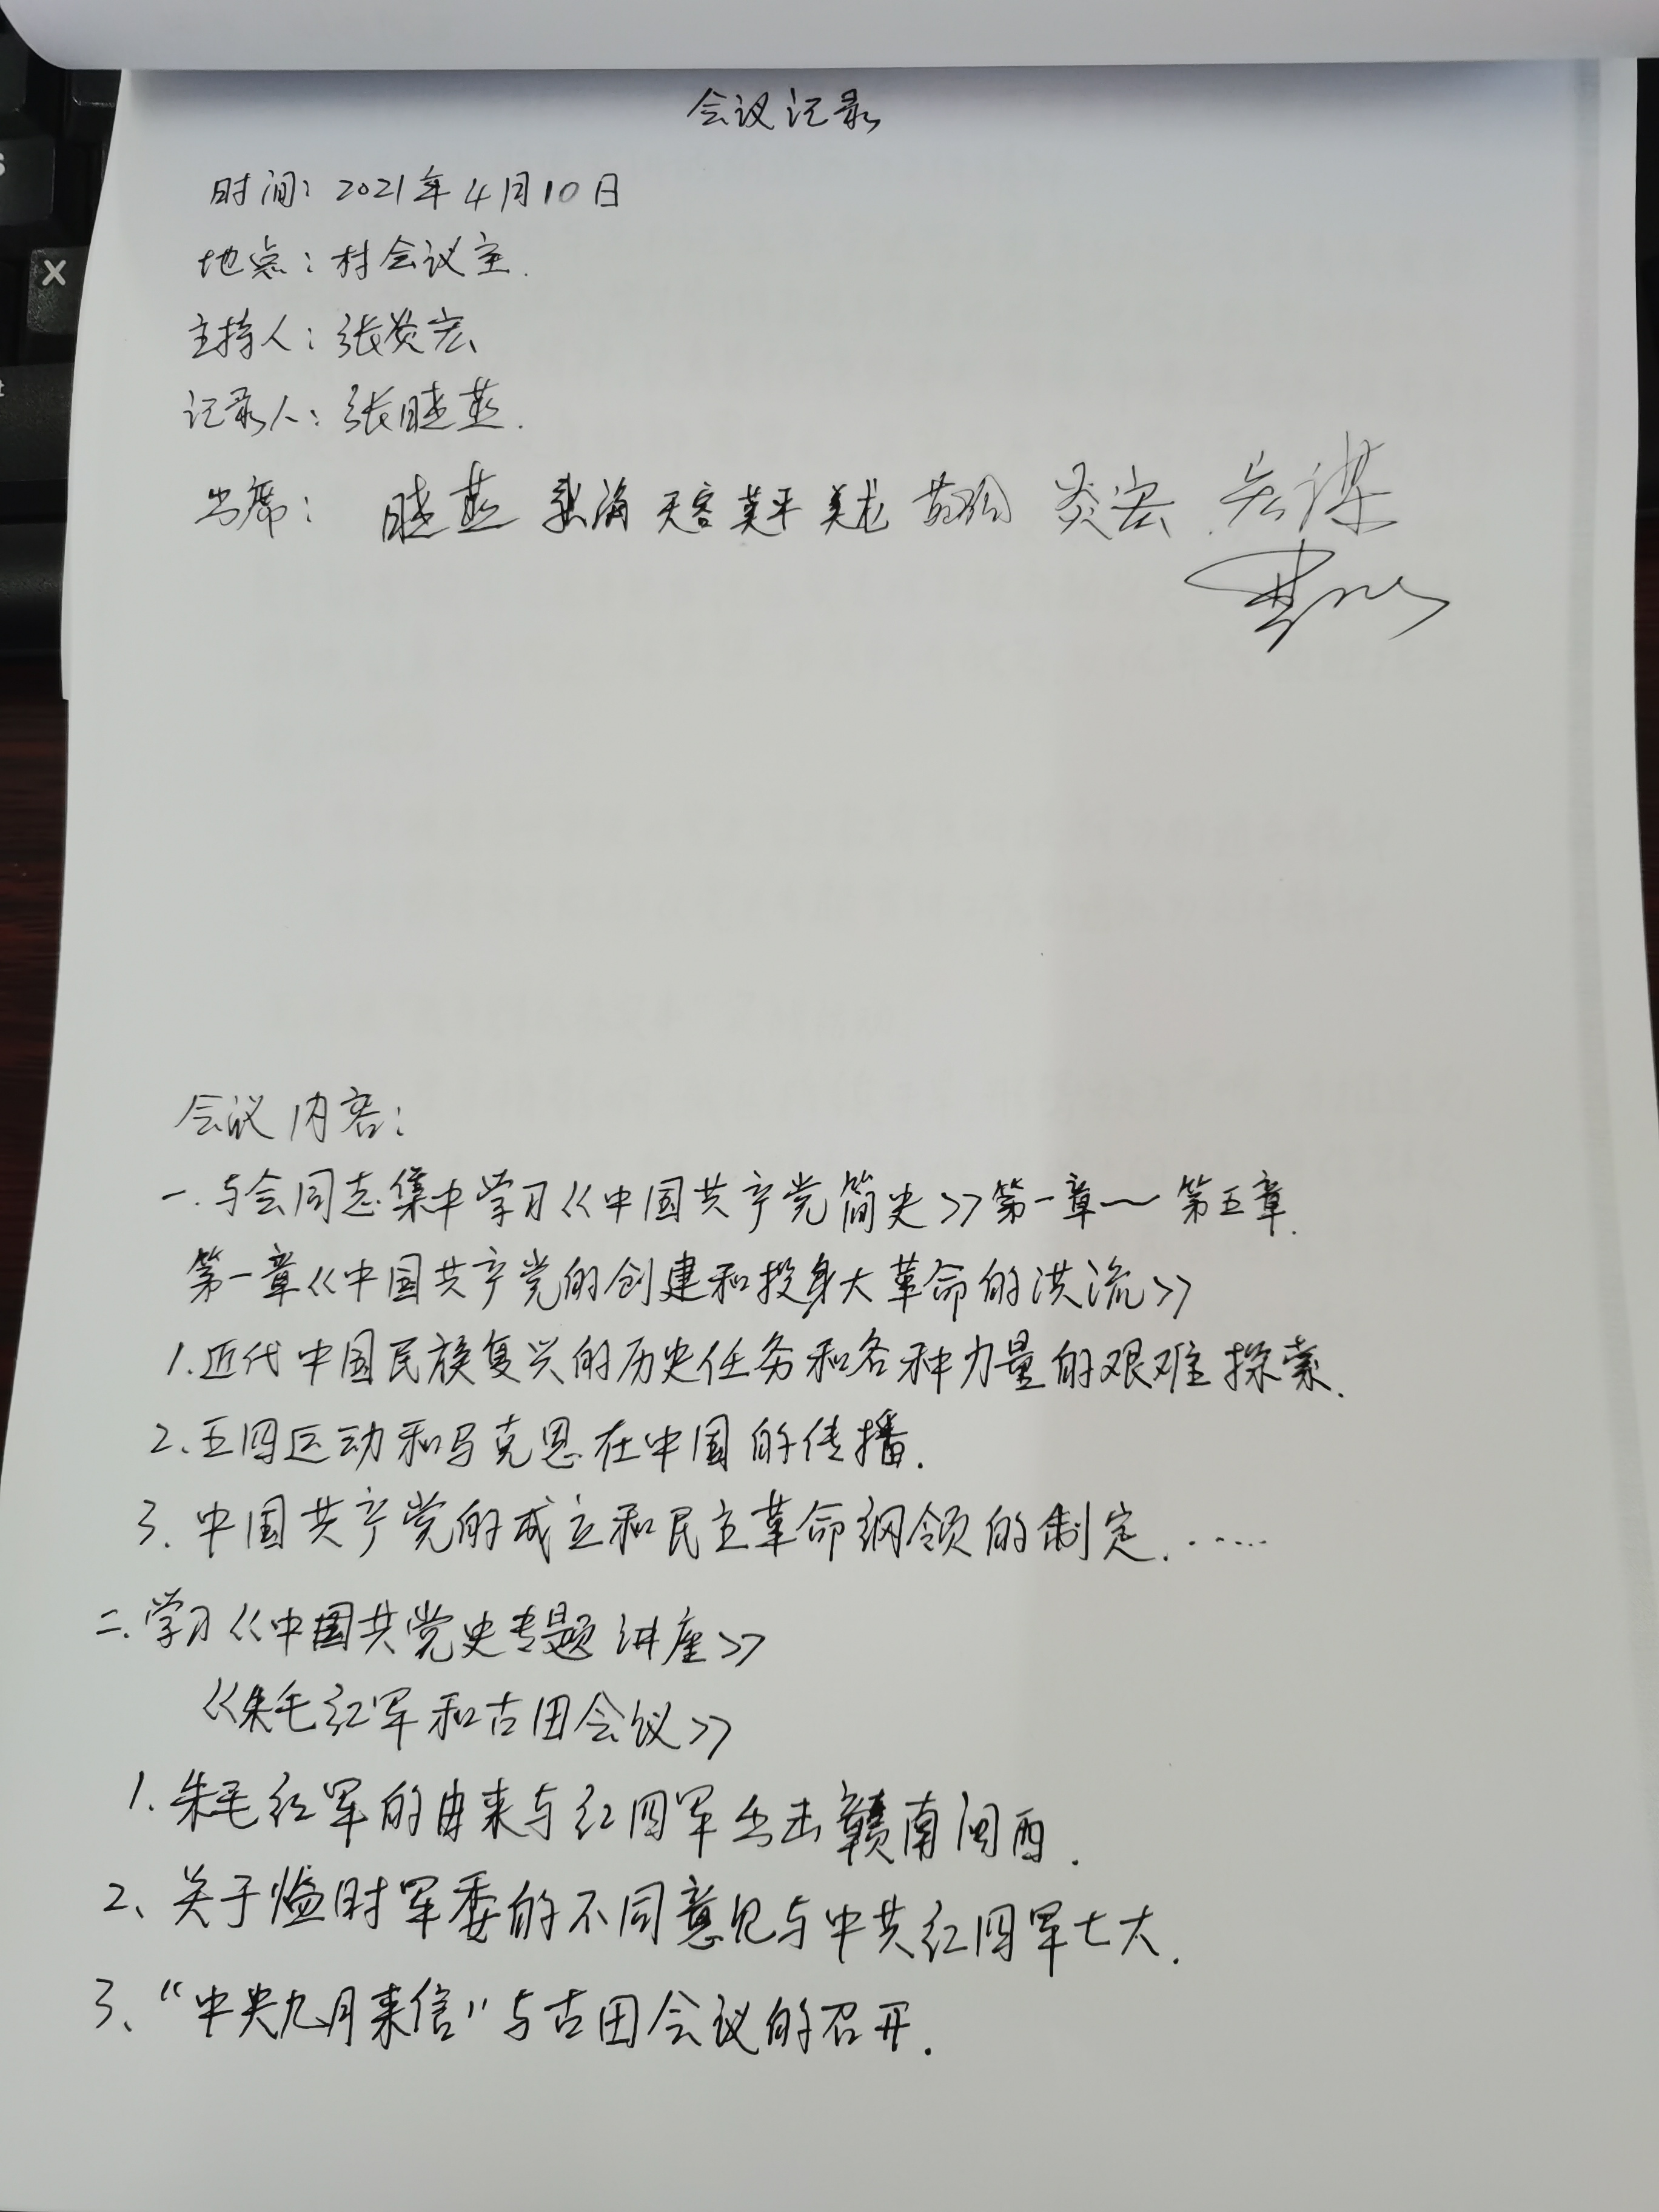 会议记录
时间：2021年4月10日
地点：村会议室.
主持人：张炎宏
记录人：张晓燕.
出席：晓燕 海 天容 英平 美龙 炎宏
会议内容：
一.与会同志集中学习《中国共产党简史》第一章～第五章.
第一章《中国共产党的创建和投身大革命的洪流》
1.近代中国民族复兴的历史任务和各种力量的艰难探索.
2、五四运动和马克思在中国的传播.
3.中国共产党的成立和民主革命纲领的制定.……
二.学习《中国共党史专题讲座》
《朱毛红军和古田会议》
1.朱毛红军的由来与红四军出击赣南闽西.
2、关于临时军委的不同意见与中共红四军七大.
3、“中央九月来信”与古田会议的召开.